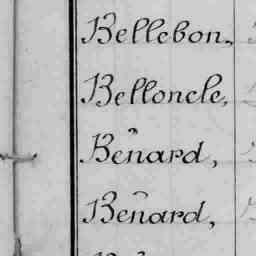 Bellebon,
Belloncle,
Bénard,
Bénard,